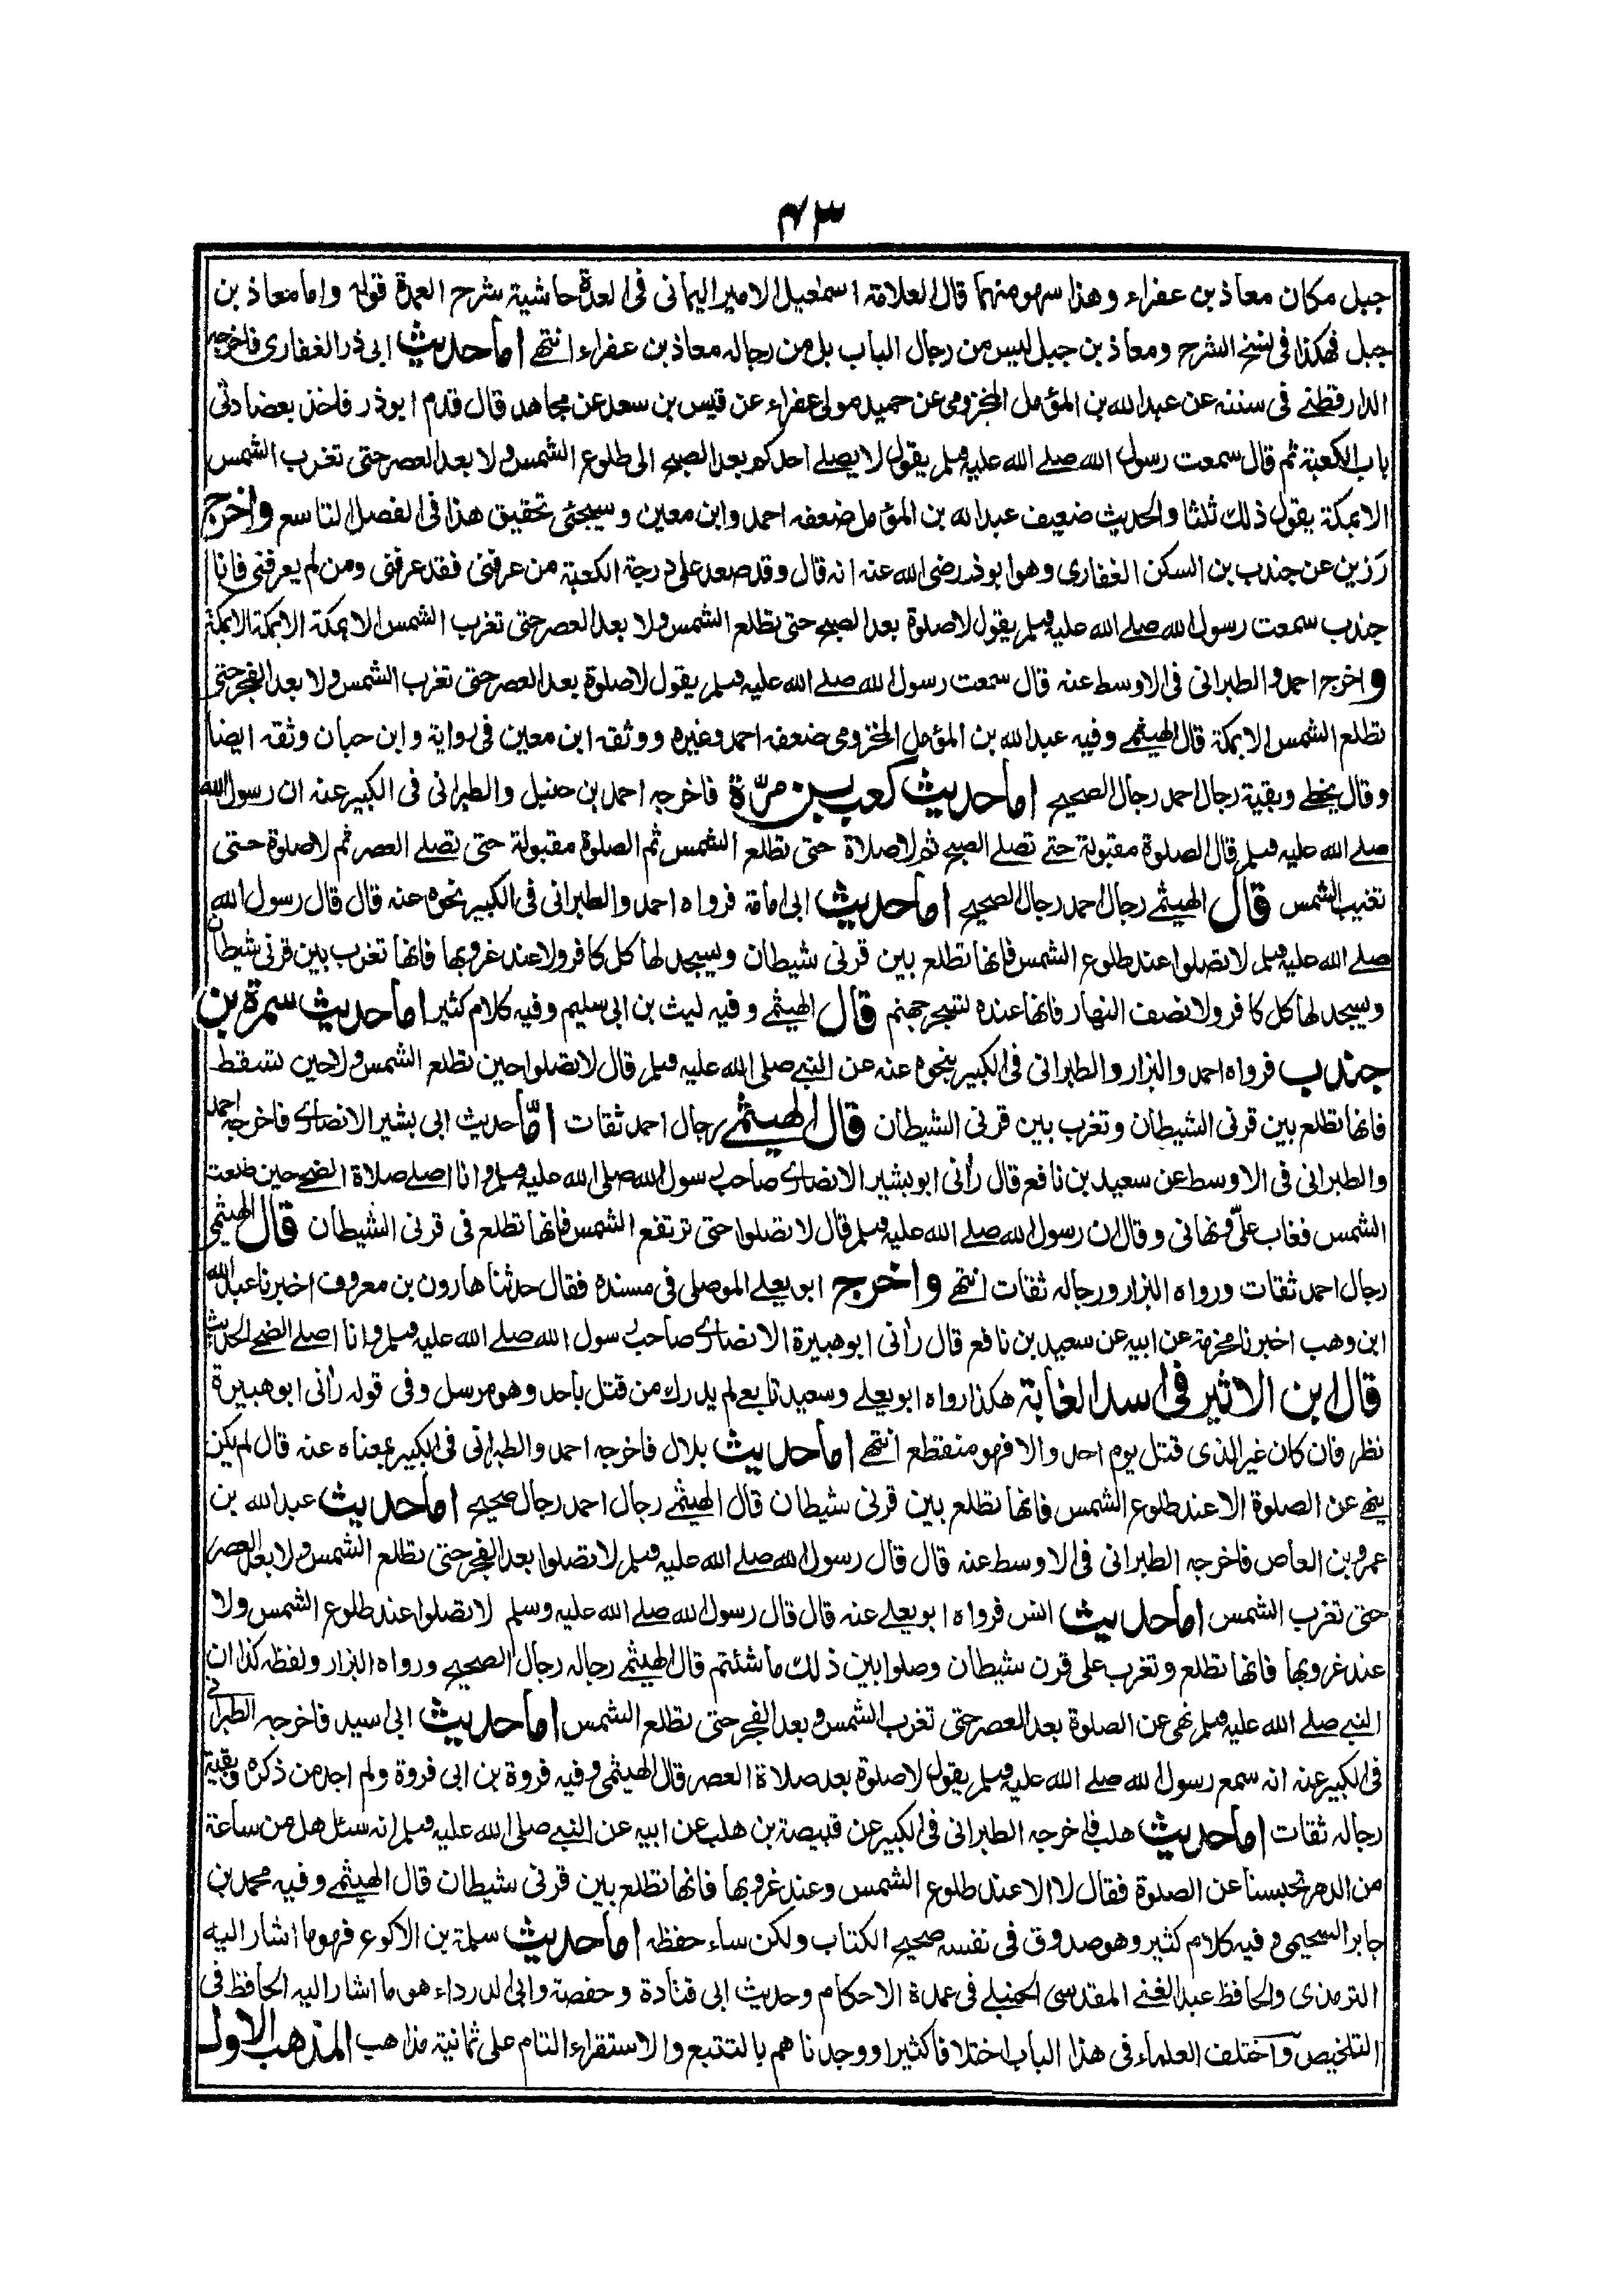 ٤٣
جبل مكان معاذ بن عفراء وهذا سهو منهما قال العلامة اسمعيل الامير اليمانى فى العدة حاشية شرح العمدة قوله واما معاذ بن
جبل فهكذا فى نسخ الشرح ومعاذ بن جبل ليس من رجال الباب بل من رجاله معاذ بن عفراء انتهے اما حديث ابى ذر الغفارى فاخرجه
الدارقطنے فى سننه عن عبد الله بن المؤمل المخزومى عن حميد مولى عفراء عن قيس بن سعد عن مجاهد قال قدم ابوذر فاخذ بعضادتى
باب الكعبة ثم قال سمعت رسول الله صلے الله عليه وسلم يقول لا يصلے احدكم بعد الصبح الى طلوع الشمس ولا بعد العصر حتى تغرب الشمس
الا بمكة يقول ذلك ثلثا والحديث ضعيف عبد الله بن المؤمل ضعفه احمد وابن معين وسيجئى تحقيق هذا فى الفصل التاسع واخرج
رزين عن جندب بن السكن الغفارى وهو ابوذر رضى الله عنه انه قال وقد صعد على درجة الكعبة من عرفنى فقد عرفنى ومن لم يعرفنى فانا
جندب سمعت رسول الله صلے الله عليه وسلم يقول لا صلوة بعد الصبح حتى تطلع الشمس ولا بعد العصر حتى تغرب الشمس الا بمكة الا بمكة الا بمكة
واخرج احمد والطبرانى فى الاوسط عنه قال سمعت رسول الله صلے الله عليه وسلم يقول لا صلوة بعد العصر حتى تغرب الشمس ولا بعد الفجر حتى
تطلع الشمس الا بمكة قال الهيثمے وفيه عبد الله بن المؤمل المخزومى ضعفه احمد وغيره ووثقه ابن معين فى رواية وابن حبان وثقه ايضا
وقال يخطے وبقية رجال احمد رجال الصحيح اما حديث كعب بن مرّة فاخرجه احمد بن حنبل والطبرانى فى الكبير عنه ان رسول الله
صلے الله عليه وسلم قال الصلوة مقبولة حتے تصلے الصبح ثم لا صلاة حتى تطلع الشمس ثم الصلوة مقبولة حتى تصلے العصر ثم لا صلوة حتى
تغيب الشمس قال الهيثمے رجال احمد رجال الصحيح اما حديث ابى امامة فرواه احمد والطبرانى فى الكبير نحوه عنه قال قال رسول الله
صلے الله عليه وسلم لا تصلوا عند طلوع الشمس فانها تطلع بين قرنى شيطان ويسجد لها كل كافر ولا عند غروبها فانها تغرب بين قرنى شيطان
ويسجد لها كل كافر ولا نصف النهار فانها عنده تسجر جهنم قال الهيثمے وفيه ليث بن ابى سليم وفيه كلام كثير اما حديث سمرة بن
جندب فرواه احمد والبزار والطبرانى فى الكبير بنحوه عنه عن النبے صلى الله عليه وسلم قال لا تصلوا حين تطلع الشمس ولا حين تسقط
فانها تطلع بين قرنى الشيطان وتغرب بين قرنى الشيطان قال الهيثمے رجال احمد ثقات امّا حديث ابى بشير الانصارى فاخرجه احمد
والطبرانى فى الاوسط عن سعيد بن نافع قال رأنى ابو بشير الانصارى صاحب رسول الله صلى الله عليه وسلم وانا اصلے صلاة الضحے حين طلعت
الشمس فعاب علىّ ونهانى وقال ان رسول الله صلے الله عليه وسلم قال لا تصلوا حتى ترتفع الشمس فانها تطلع فى قرنى الشيطان قال الهيثمى
رجال احمد ثقات ورواه البزار ورجاله ثقات انتهے واخرج ابو يعلے الموصلى فى مسنده فقال حدثنا هارون بن معروف اخبرنا عبد الله
ابن وهب اخبرنا مخرمة عن ابيه عن سعيد بن نافع قال رأنى ابو هبيرة الانصارى صاحب رسول الله صلے الله عليه وسلم وانا اصلے الضحے الحديث
قال ابن الاثير فى اسد الغابة هكذا رواه ابو يعلے وسعيد تابعے لم يدرك من قتل باحد وهو مرسل وفى قوله رأنى ابو هبيرة
نظر فان كان غير الذى قتل يوم احد والا فهو منقطع انتهے اما حديث بلال فاخرجه احمد والطبرانى فى الكبير بمعناه عنه قال لم يكن
ينهے عن الصلوة الا عند طلوع الشمس فانها تطلع بين قرنى شيطان قال الهيثمے رجال احمد رجال صحيح اما حديث عبد الله بن
عمرو بن العاص فاخرجه الطبرانى فى الاوسط عنه قال قال رسول الله صلے الله عليه وسلم لا تصلوا بعد الفجر حتى تطلع الشمس ولا بعد العصر
حتى تغرب الشمس اما حديث انس فرواه ابو يعلے عنه قال قال رسول الله صلے الله عليه وسلم لا تصلوا عند طلوع الشمس ولا
عند غروبها فانها تطلع وتغرب على قرن شيطان وصلوا بين ذلك ما شئتم قال الهيثمے رجاله رجال الصحيح ورواه البزار ولفظه كذا ان
النبے صلے الله عليه وسلم نهى عن الصلوة بعد العصر حتى تغرب الشمس وبعد الفجر حتى تطلع الشمس اما حديث ابى اسيد فاخرجه الطبرانى
فى الكبير عنه انه سمع رسول الله صلے الله عليه وسلم يقول لا صلوة بعد صلاة العصر قال الهيثمى وفيه فروة بن ابى فروة ولم اجد من ذكره وبقية
رجاله ثقات اما حديث هلب فاخرجه الطبرانى فى الكبير عن قبيصة بن هلب عن ابيه عن النبے صلى الله عليه وسلم انه سئل هل من ساعة
من الدهر تحبسنا عن الصلوة فقال لا الا عند طلوع الشمس وعند غروبها فانها تطلع بين قرنى شيطان قال الهيثمے وفيه محمد بن
جابر السحيمى وفيه كلام كثير وهو صدوق فى نفسه صحيح الكتاب ولكن ساء حفظه اما حديث سلمة بن الاكوع فهو ما اشار اليه
الترمذى والحافظ عبد الغنے المقدسى الحنبلے فى عمدة الاحكام وحديث ابى قتادة وحفصة وابى الدرداء هو ما اشار اليه الحافظ فى
التلخيص واختلف العلماء فى هذا الباب اختلافا كثيرا ووجدناهم بالتتبع والاستقراء التام على ثمانية مذاهب المذهب الاول